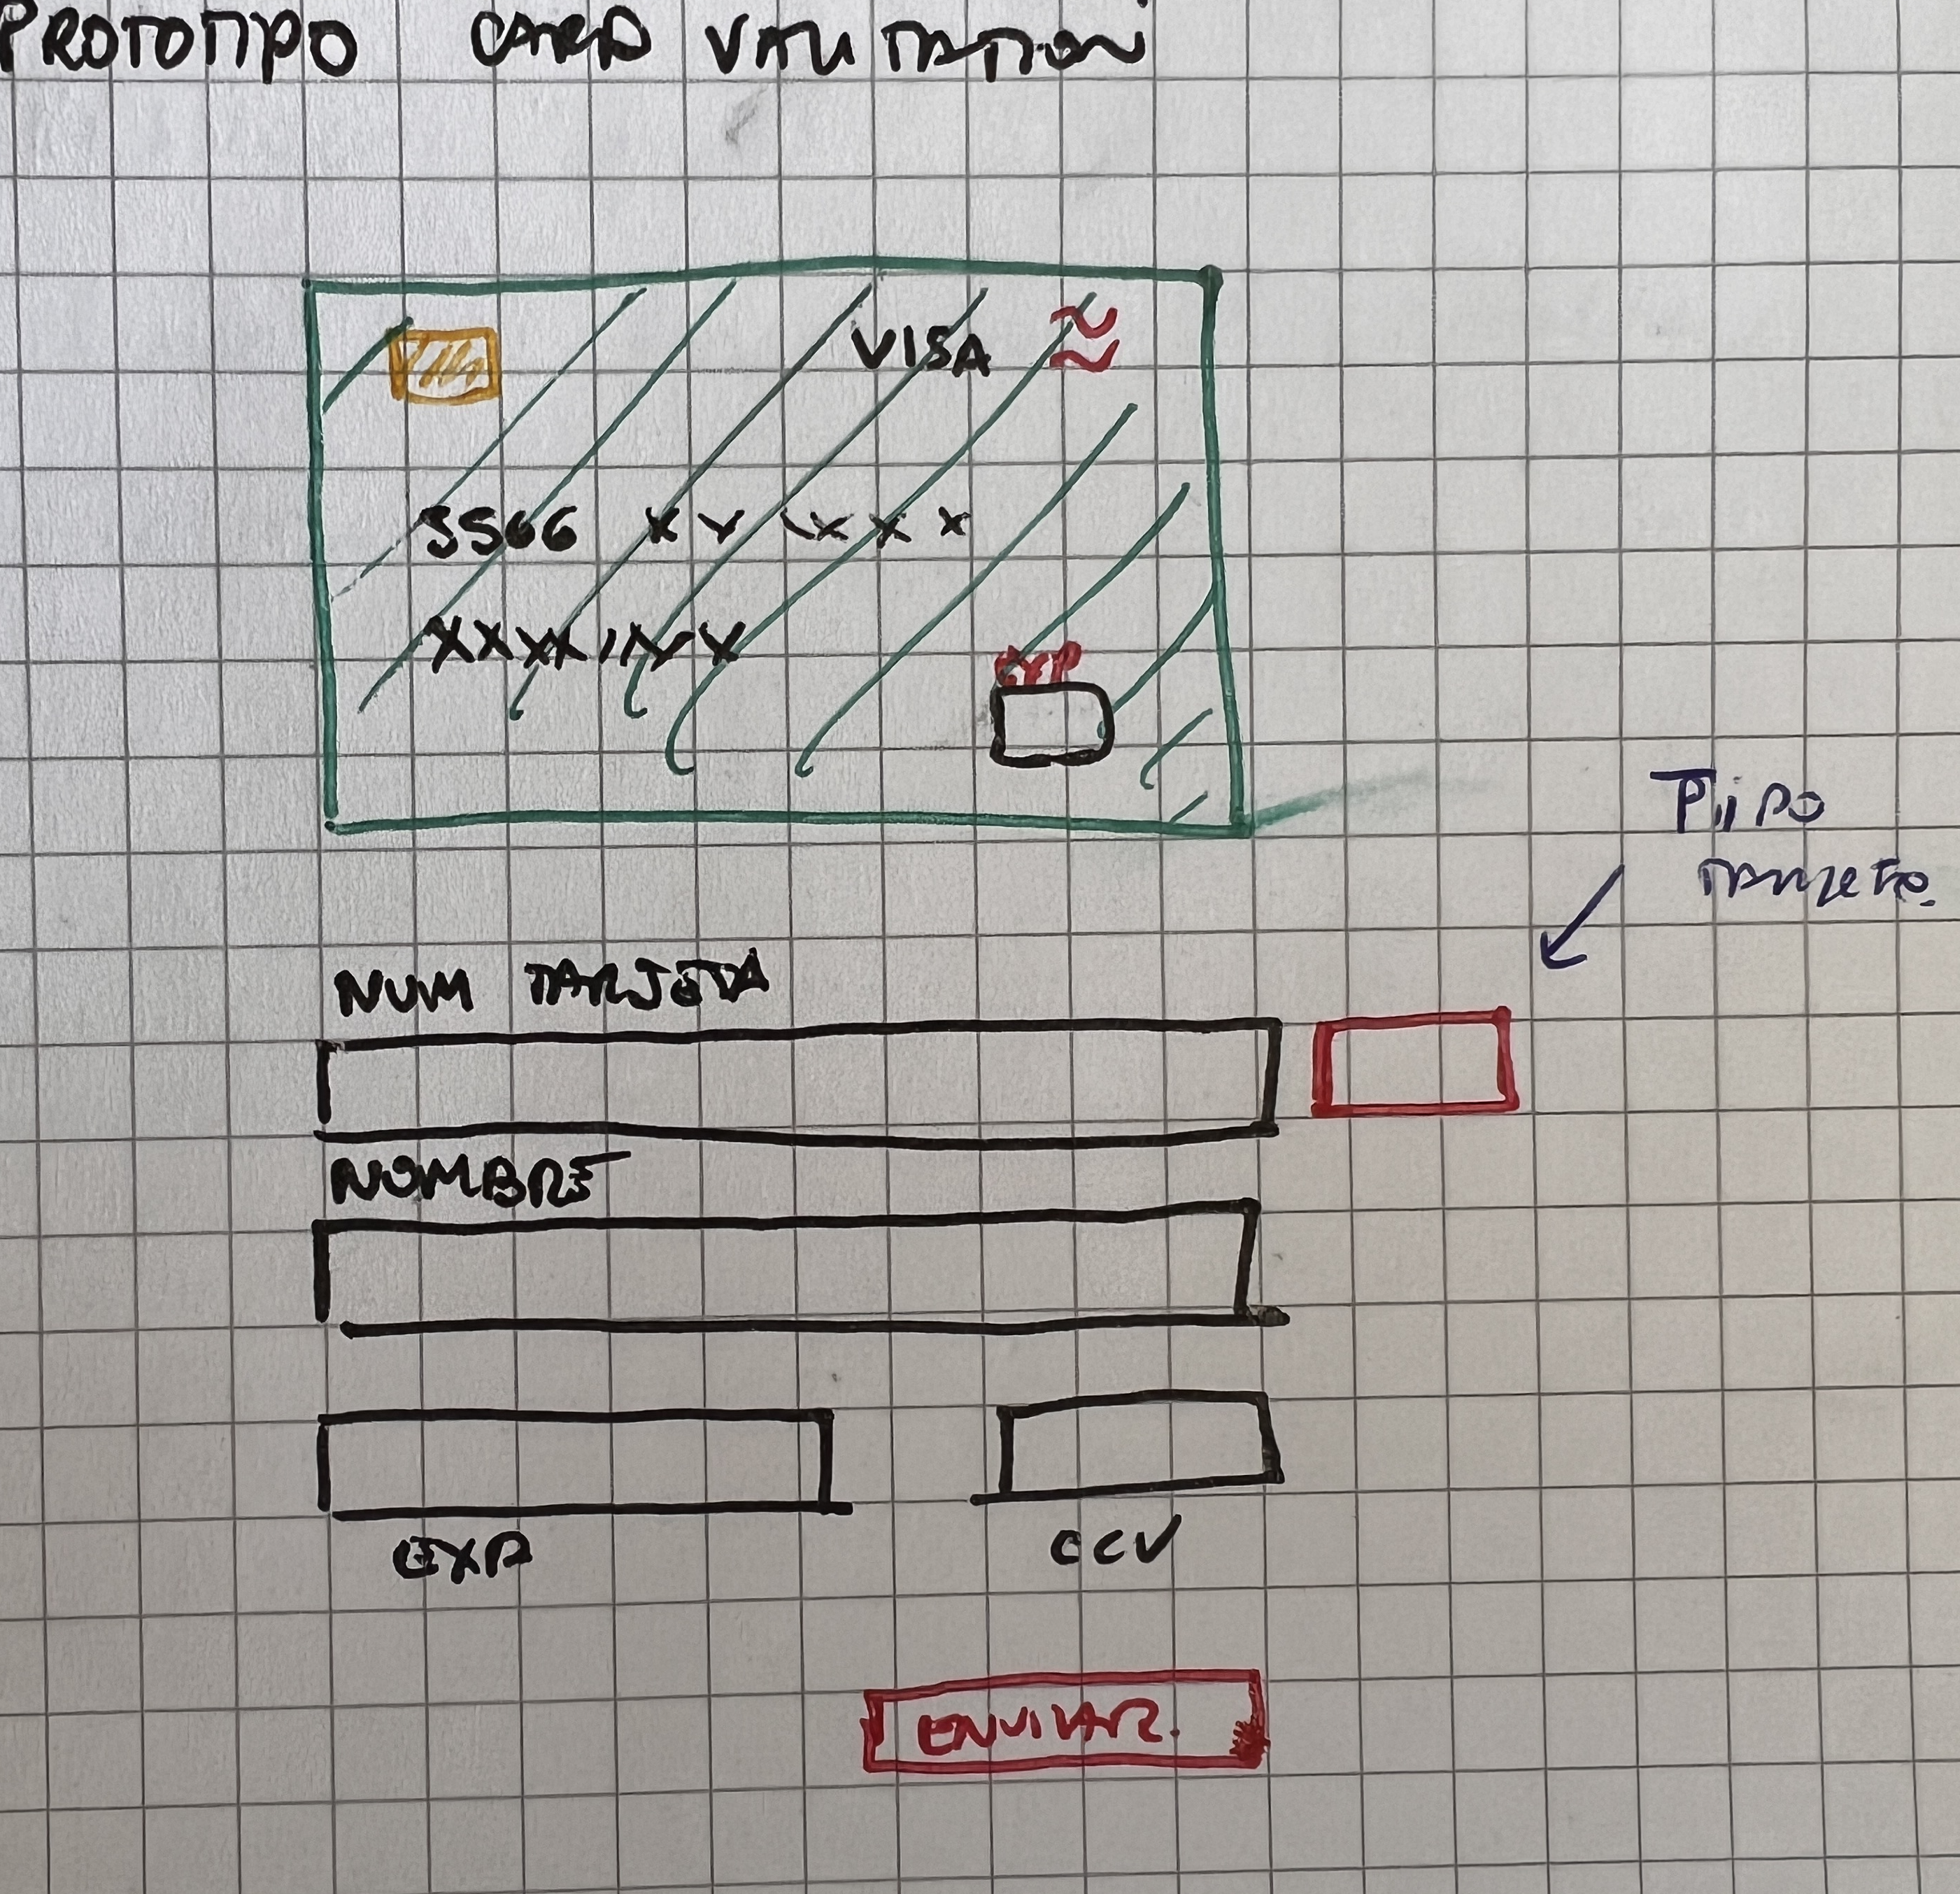 PROTOTIPO CARD VALITATION
VISA
5566 XX XXXX
XXXXXXXX
EXP
Tipo
tarjeta.
NUM TARJETA
NOMBRE
EXP
CCV
ENVIAR.